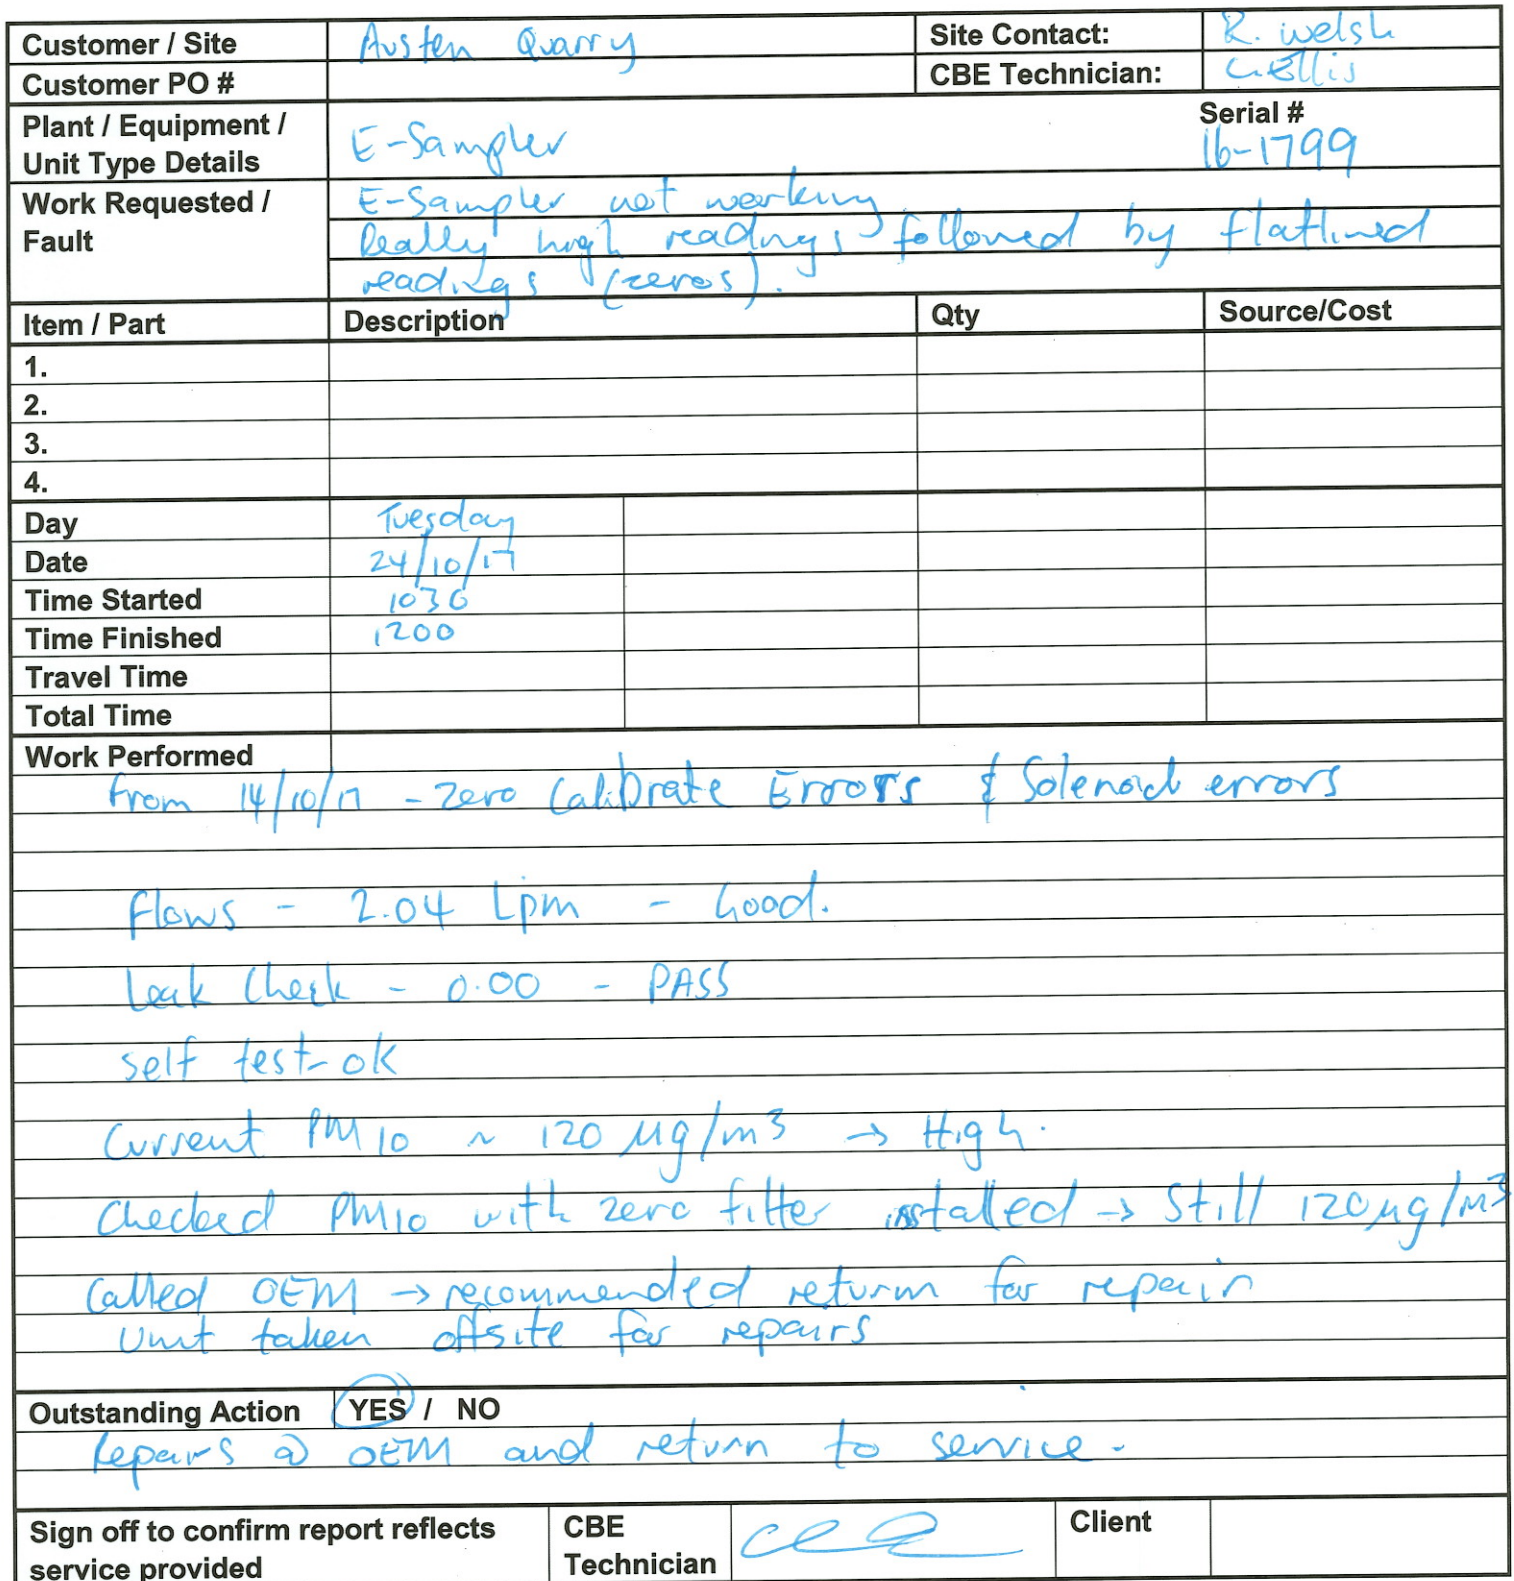 Customer / Site Austen Quarry Site Contact: R. Welsh
Customer PO # CBE Technician: C. Ellis
Plant / Equipment / Unit Type Details E-Sampler Serial # 16-1799
Work Requested / Fault E-Sampler not working
Really high readings followed by flatlined
readings (zeros).
Item / Part Description Qty Source/Cost
1.
2.
3.
4.
Day Tuesday
Date 24/10/17
Time Started 1030
Time Finished 1200
Travel Time
Total Time
Work Performed
From 14/10/17 - Zero Calibrate Errors & Solenoid errors
Flows - 2.04 Lpm - Good.
Leak Check - 0.00 - PASS
self test - ok
Current PM10 ~ 120 µg/m3 → High.
Checked PM10 with zero filter installed → Still 120µg/m3
Called OEM → recommended return for repair
Unit taken offsite for repairs
Outstanding Action YES / NO
Repairs @ OEM and return to service.
Sign off to confirm report reflects service provided CBE Technician Client